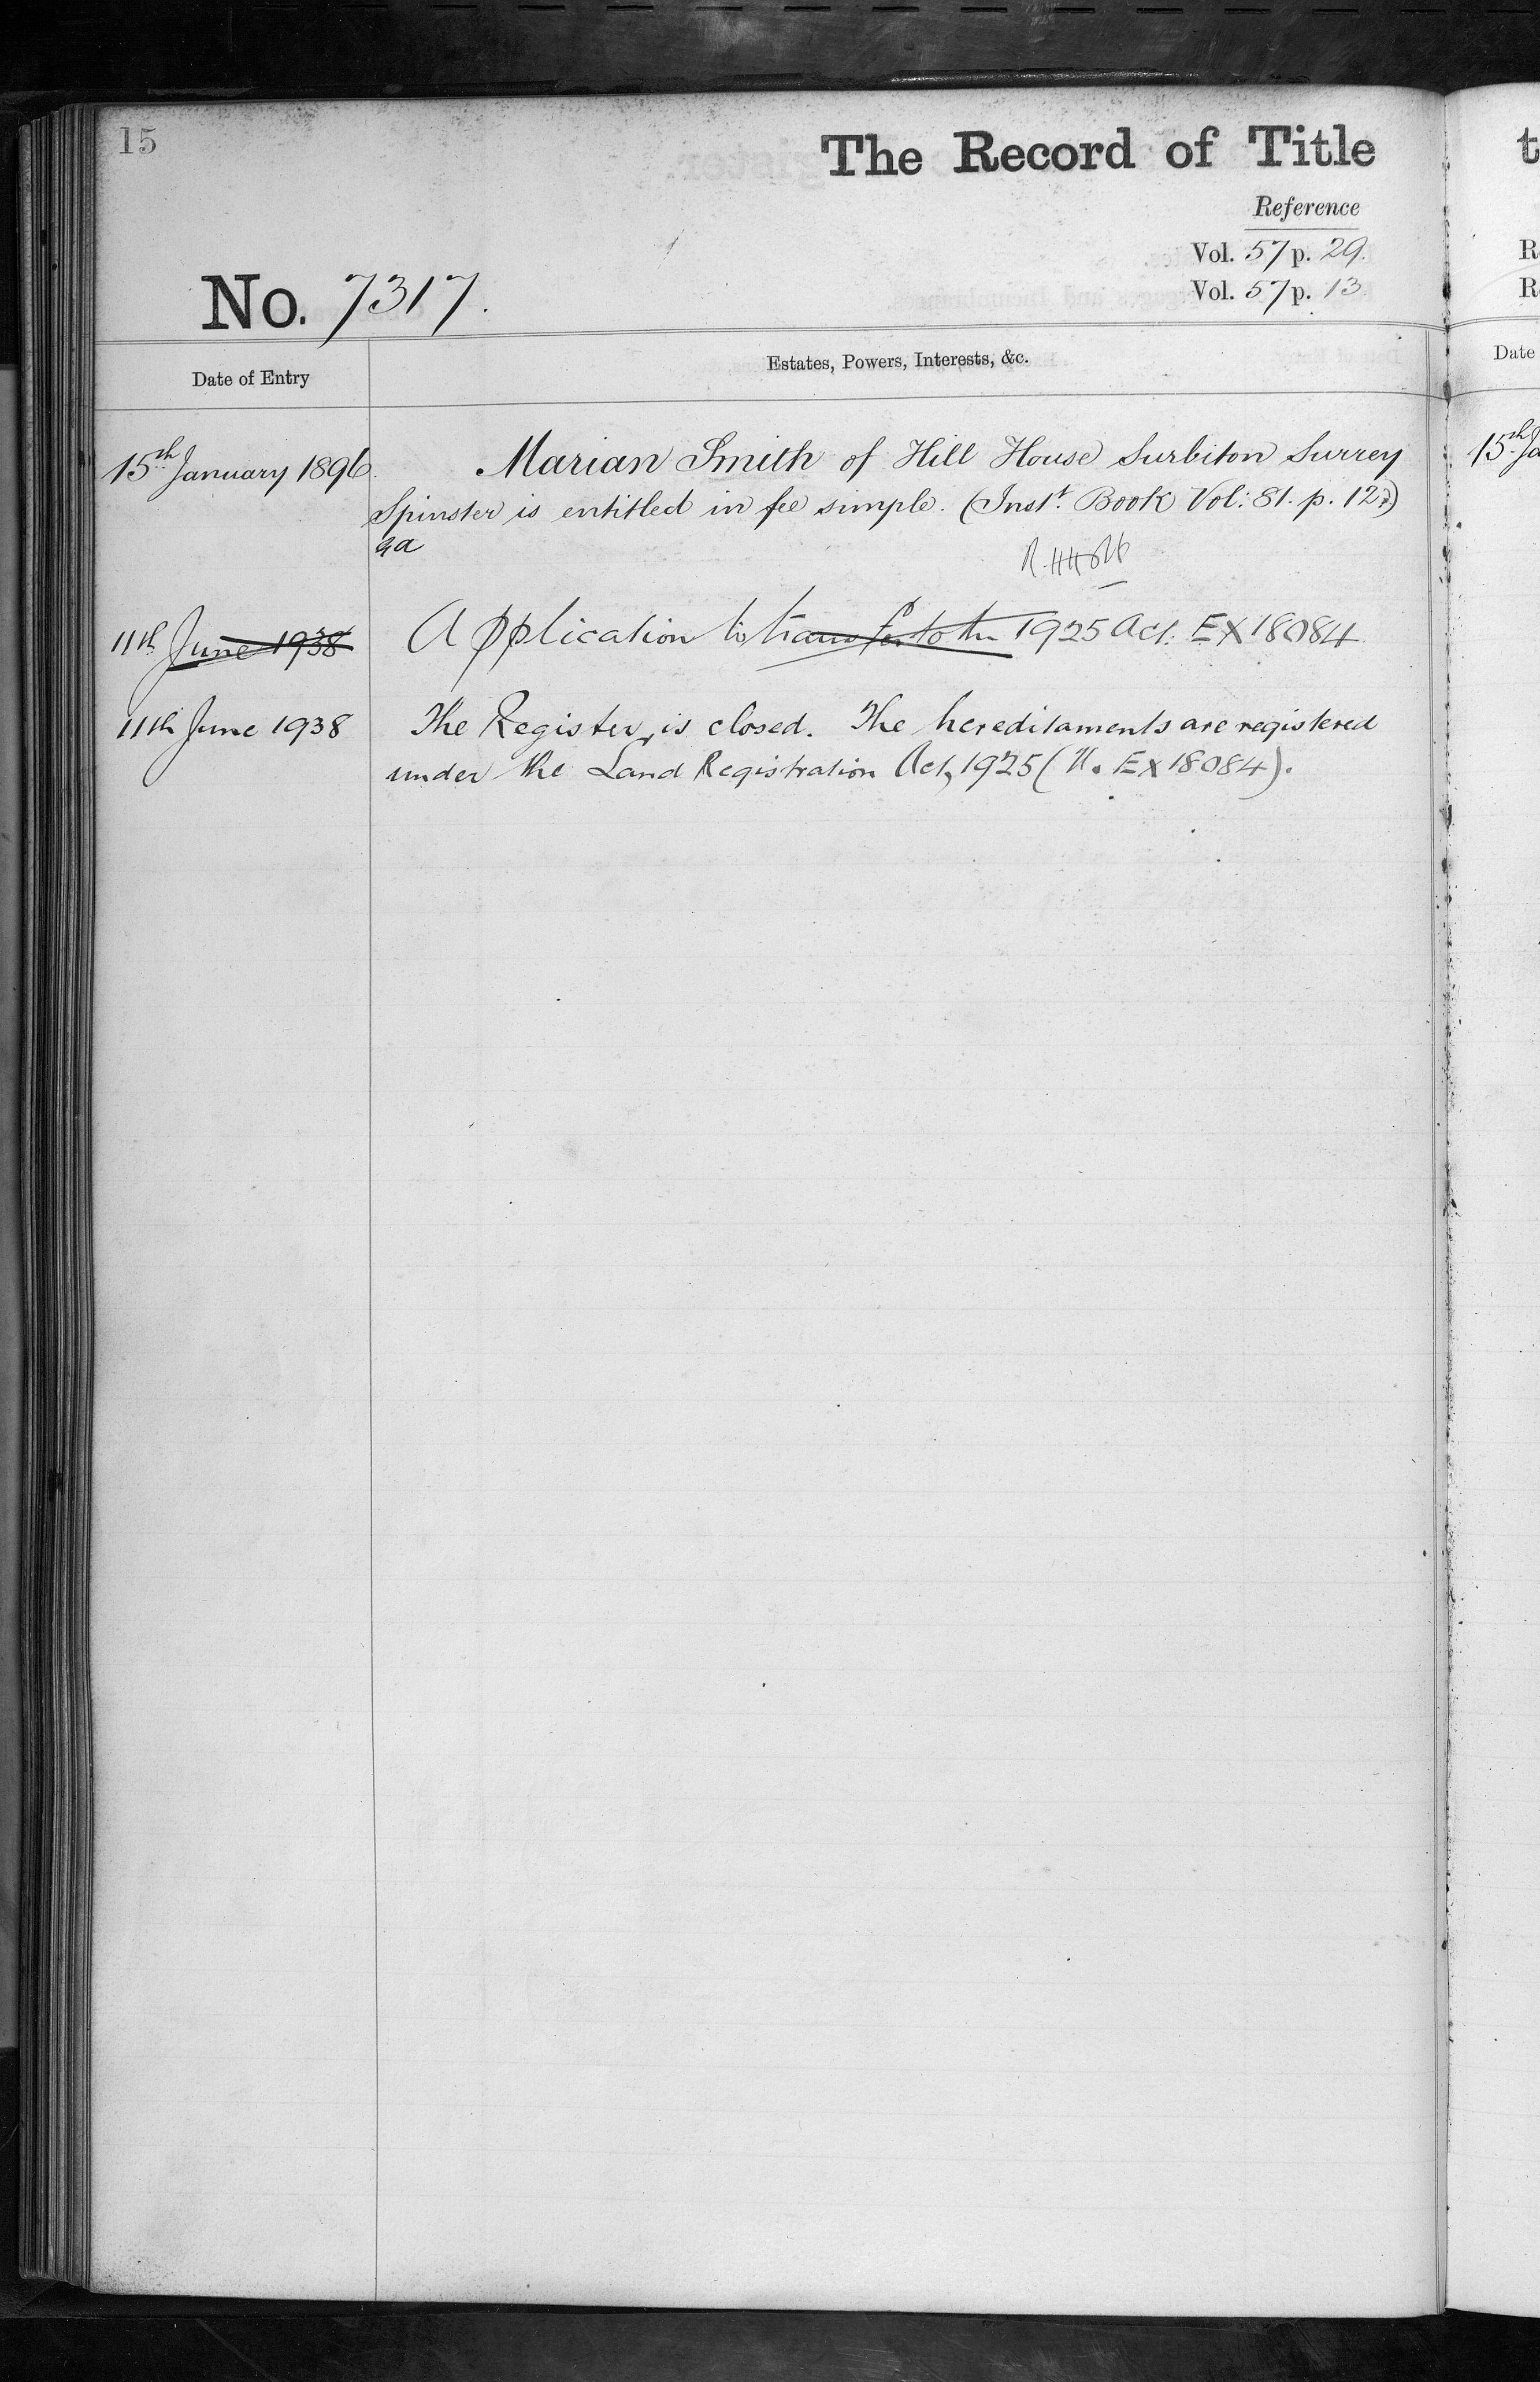 15
The Record of Title
Reference
Vol. 57 p. 29.
Vol. 57 p. 13
No. 7317.
Date of Entry
Estates, Powers, Interests, &c.
15th January 1896
Marian Smith of Hill House Surbiton Surrey
Spinster is entitled in fee simple. (Inst. Book Vol: 81. p. 127)
11th June 1938
Application to transfer to the 1925 Act. EX18084
11th June 1938
The Register is closed. The hereditaments are registered
under the Land Registration Act, 1925 (N. EX18084).
t
R
R
Date
15th Ja